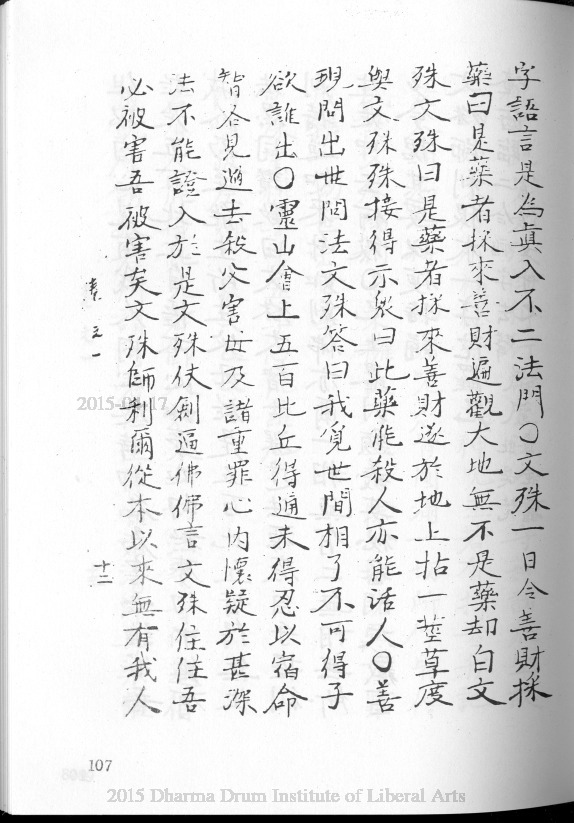 字語言是為眞入不二法門〇文殊一日令善財採
藥曰是藥者採來善財遍觀大地無不是藥却白文
殊文殊曰是藥者採來善財遂於地上拈一莖草度
與文殊殊接得示衆曰此藥能殺人亦能活人〇善
現問出世間法文殊答曰我覓世間相了不可得子
欲誰出〇靈山會上五百比丘得通未得忍以宿命
智各見過去殺父害母及諸重罪心內懷疑於甚深
法不能證入於是文殊仗劍逼佛佛言文殊住住吾
必被害吾被害矣文殊師利爾從本以來無有我人
卷之一 十二
107
2015 Dharma Drum Institute of Liberal Arts